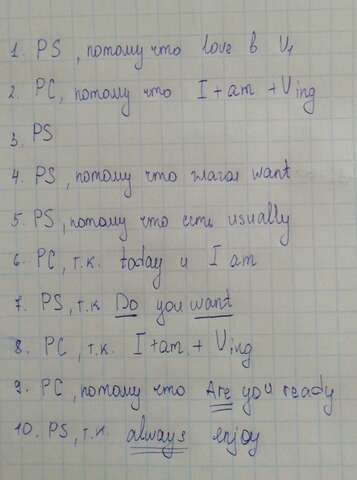 1. PS, потому что love в V₁
2. PC, потому что I + am + Ving
3. PS
4. PS, потому что глагол want
5. PS, потому что есть usually
6. PC, т.к. today и I am
7. PS, т.к Do you want
8. PC, т.к. I + am + Ving
9. PC, потому что Are you ready
10. PS, т.к. always enjoy